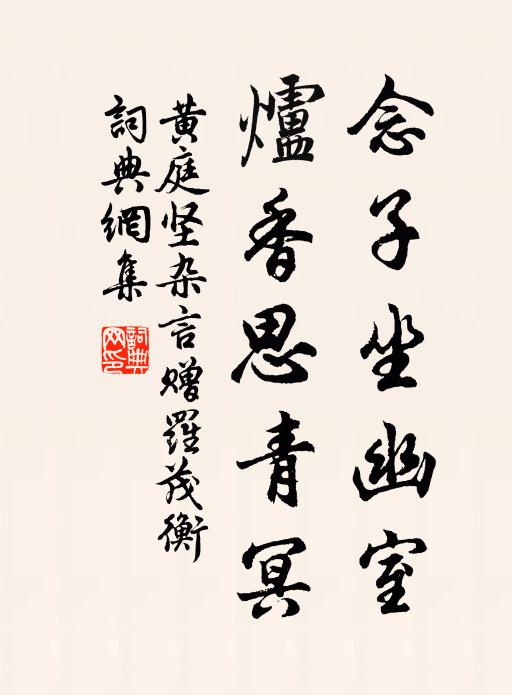 念子坐幽室
爐香思青冥
黄庭坚杂言赠羅茂衡
詞典網集
詞典网印